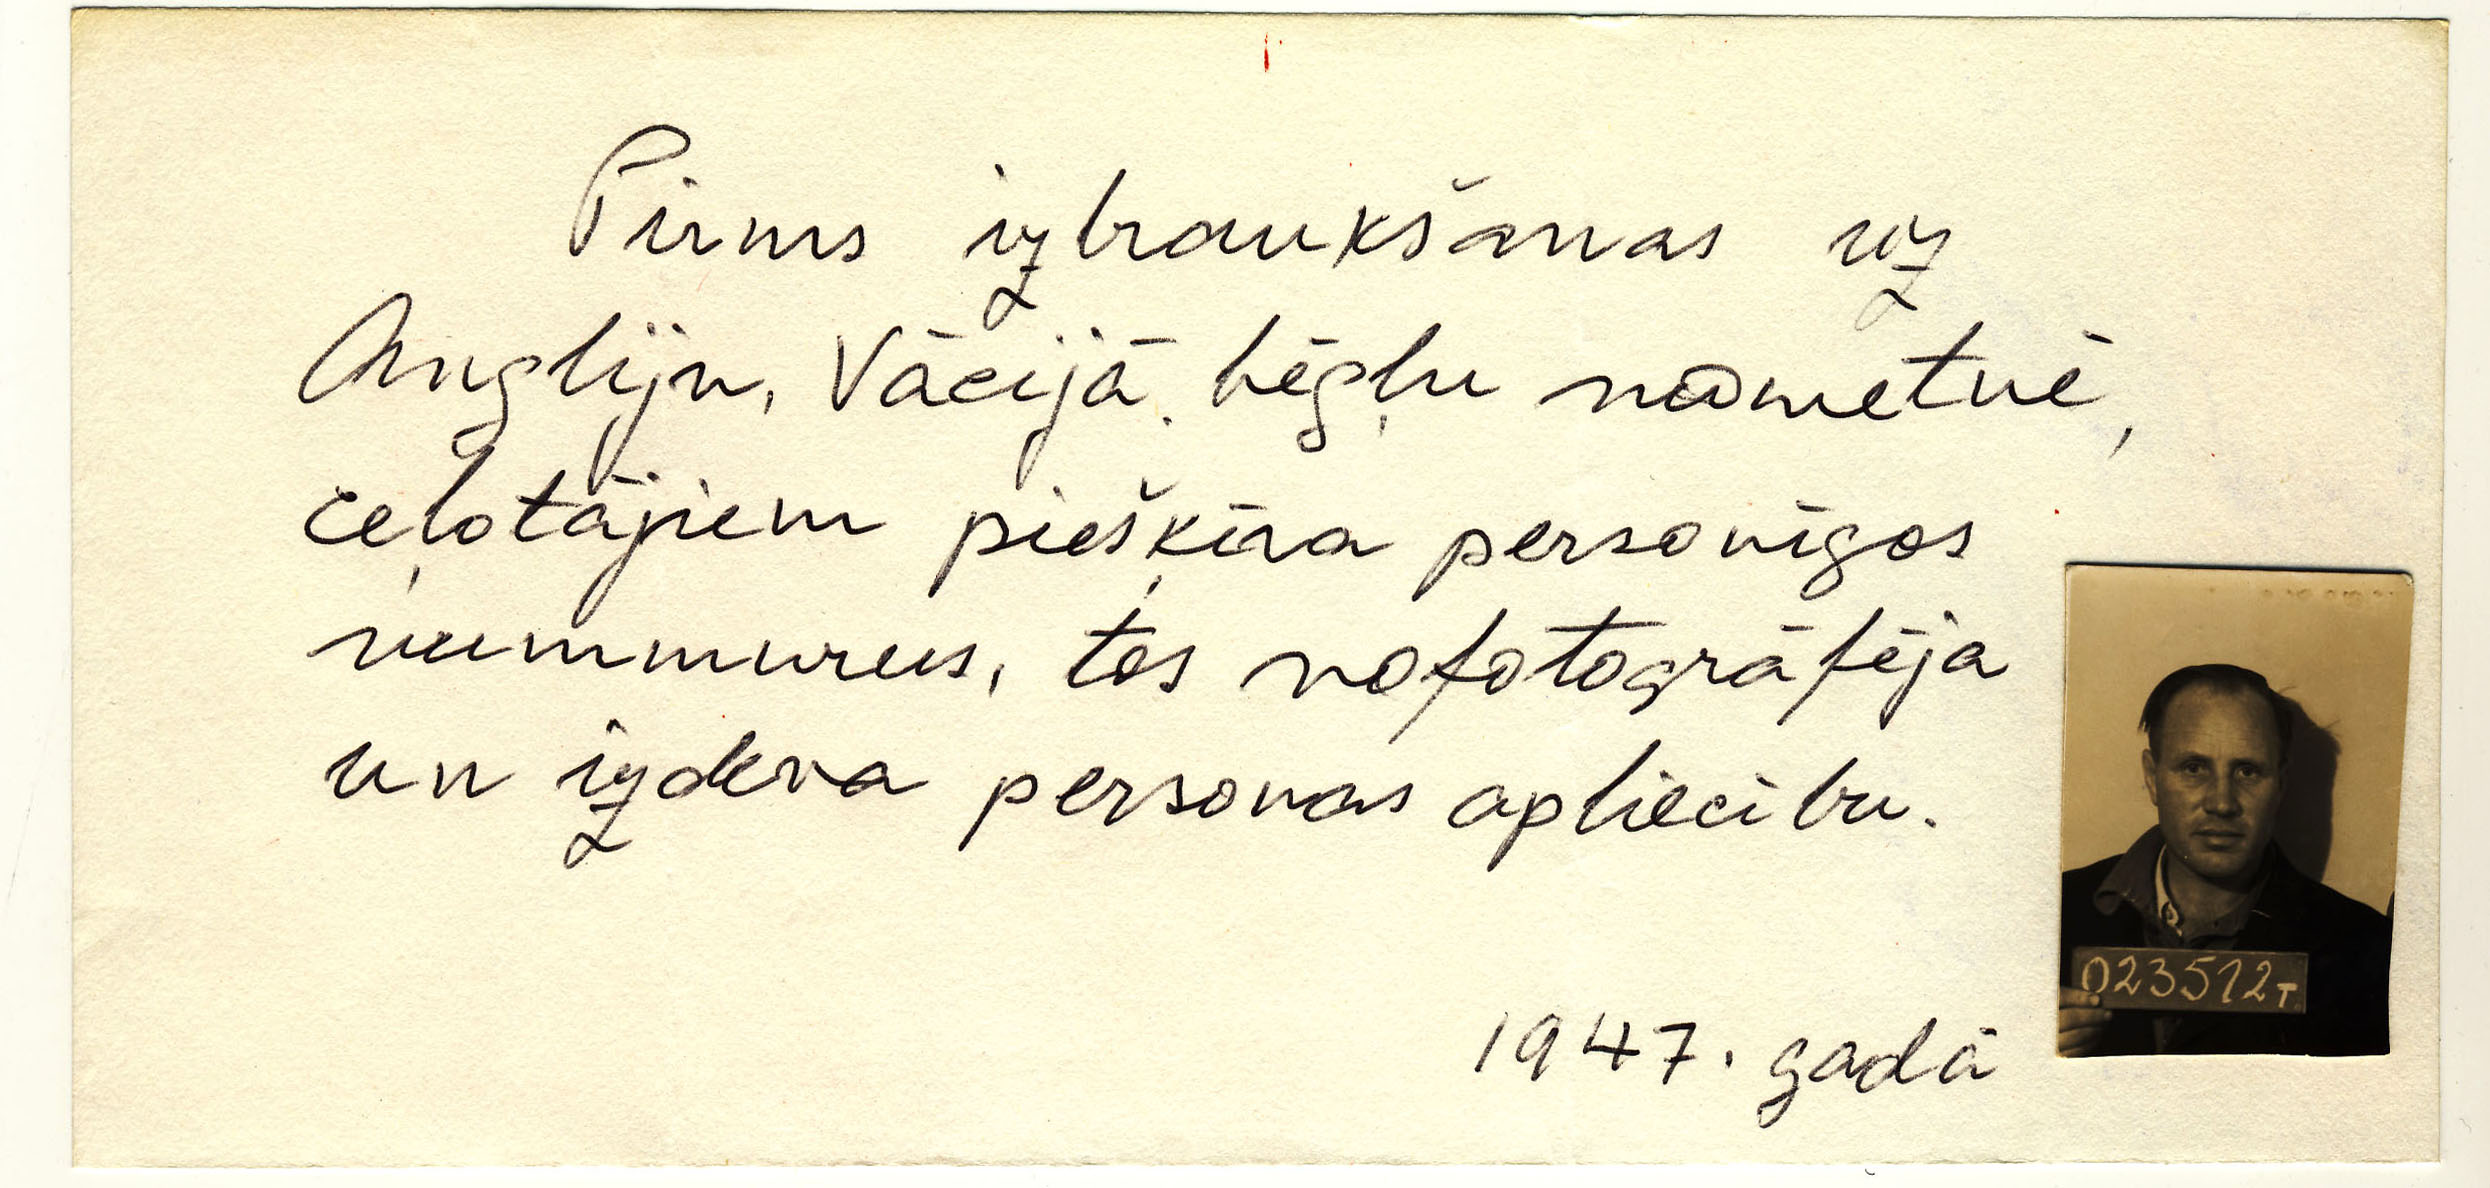 Pirms izbraukšanas uz
Angliju, Vācijā, bēgļu nometnē,
ceļotājiem piešķīra personīgos
nummurus, tos nofotografēja
un izdeva personas apliecību.
023512T
1947. gadā